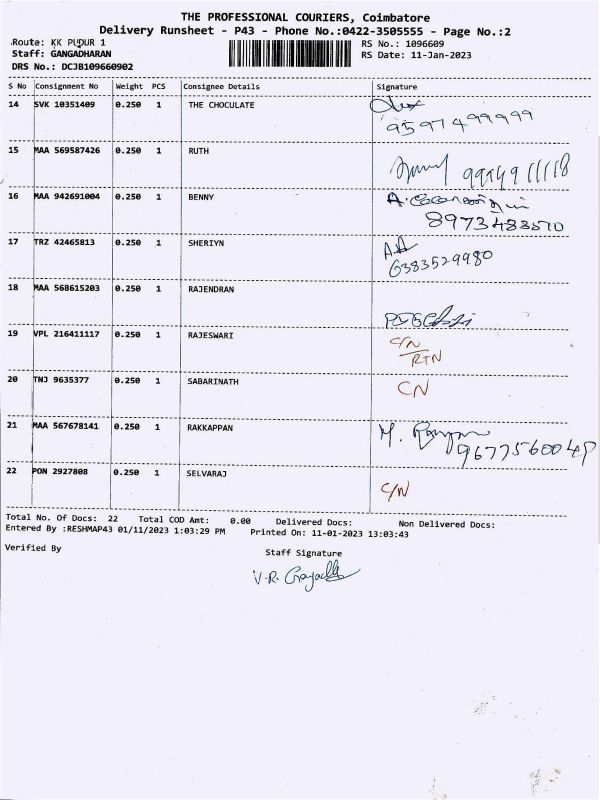 THE PROFESSIONAL COURIERS, Coimbatore
Delivery Runsheet - P43 - Phone No.:0422-3505555 - Page No.:2
Route: KK PUDUR 1
RS No.: 1096609
Staff: GANGADHARAN
RS Date: 11-Jan-2023
DRS No.: DCJB109660902
S No Consignment No Weight PCS Consignee Details Signature
14 SVK 10351409 0.250 1 THE CHOCULATE
9597499999
15 MAA 569587426 0.250 1 RUTH
16 MAA 942691004 0.250 1 BENNY
8973483570
17 TRZ 42465813 0.250 1 SHERIYN
6383529980
18 MAA 568615203 0.250 1 RAJENDRAN
19 VPL 216411117 0.250 1 RAJESWARI C/N
RTN
20 TNJ 9635377 0.250 1 SABARINATH CN
21 MAA 567678141 0.250 1 RAKKAPPAN M.
22 PON 2927808 0.250 1 SELVARAJ
C/N
Total No. Of Docs: 22 Total COD Amt: 0.00 Delivered Docs: Non Delivered Docs:
Entered By :RESHMAP43 01/11/2023 1:03:29 PM Printed On: 11-01-2023 13:03:43
Verified By Staff Signature
V.R.